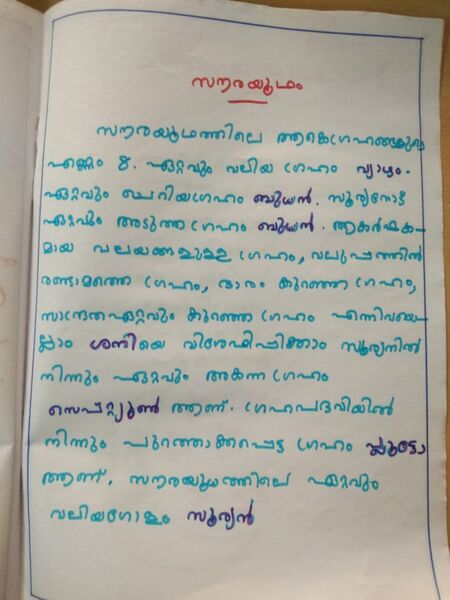 സൗരയൂഥം
സൗരയൂഥത്തിലെ ആകെഗ്രഹങ്ങളുടെ
എണ്ണം 8. ഏറ്റവും വലിയ ഗ്രഹം വ്യാഴം.
ഏറ്റവും ചെറിയഗ്രഹം ബുധൻ. സൂര്യനോട്
ഏറ്റവും അടുത്ത ഗ്രഹം ബുധൻ. ആകർഷക-
മായ വലയങ്ങളുള്ള ഗ്രഹം, വലുപ്പത്തിൽ
രണ്ടാമത്തെ ഗ്രഹം, ഭാരം കുറഞ്ഞ ഗ്രഹം,
സാന്ദ്രതഏറ്റവും കുറഞ്ഞ ഗ്രഹം എന്നിവയെ-
ല്ലാം ശനിയെ വിശേഷിപ്പിക്കാം സൂര്യനിൽ
നിന്നും ഏറ്റവും അകന്ന ഗ്രഹം
നെപ്റ്റ്യൂൺ ആണ്. ഗ്രഹപദവിയിൽ
നിന്നും പുറത്താക്കപ്പെട്ട ഗ്രഹം പ്ലൂട്ടോ
ആണ്. സൗരയൂഥത്തിലെ ഏറ്റവും
വലിയഗോളം സൂര്യൻ